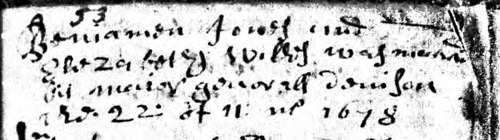 A 53
Beniamen Jones and
Elezabeth Wilks was maried
by maior generall denison
the 22: of 11 mo 1678